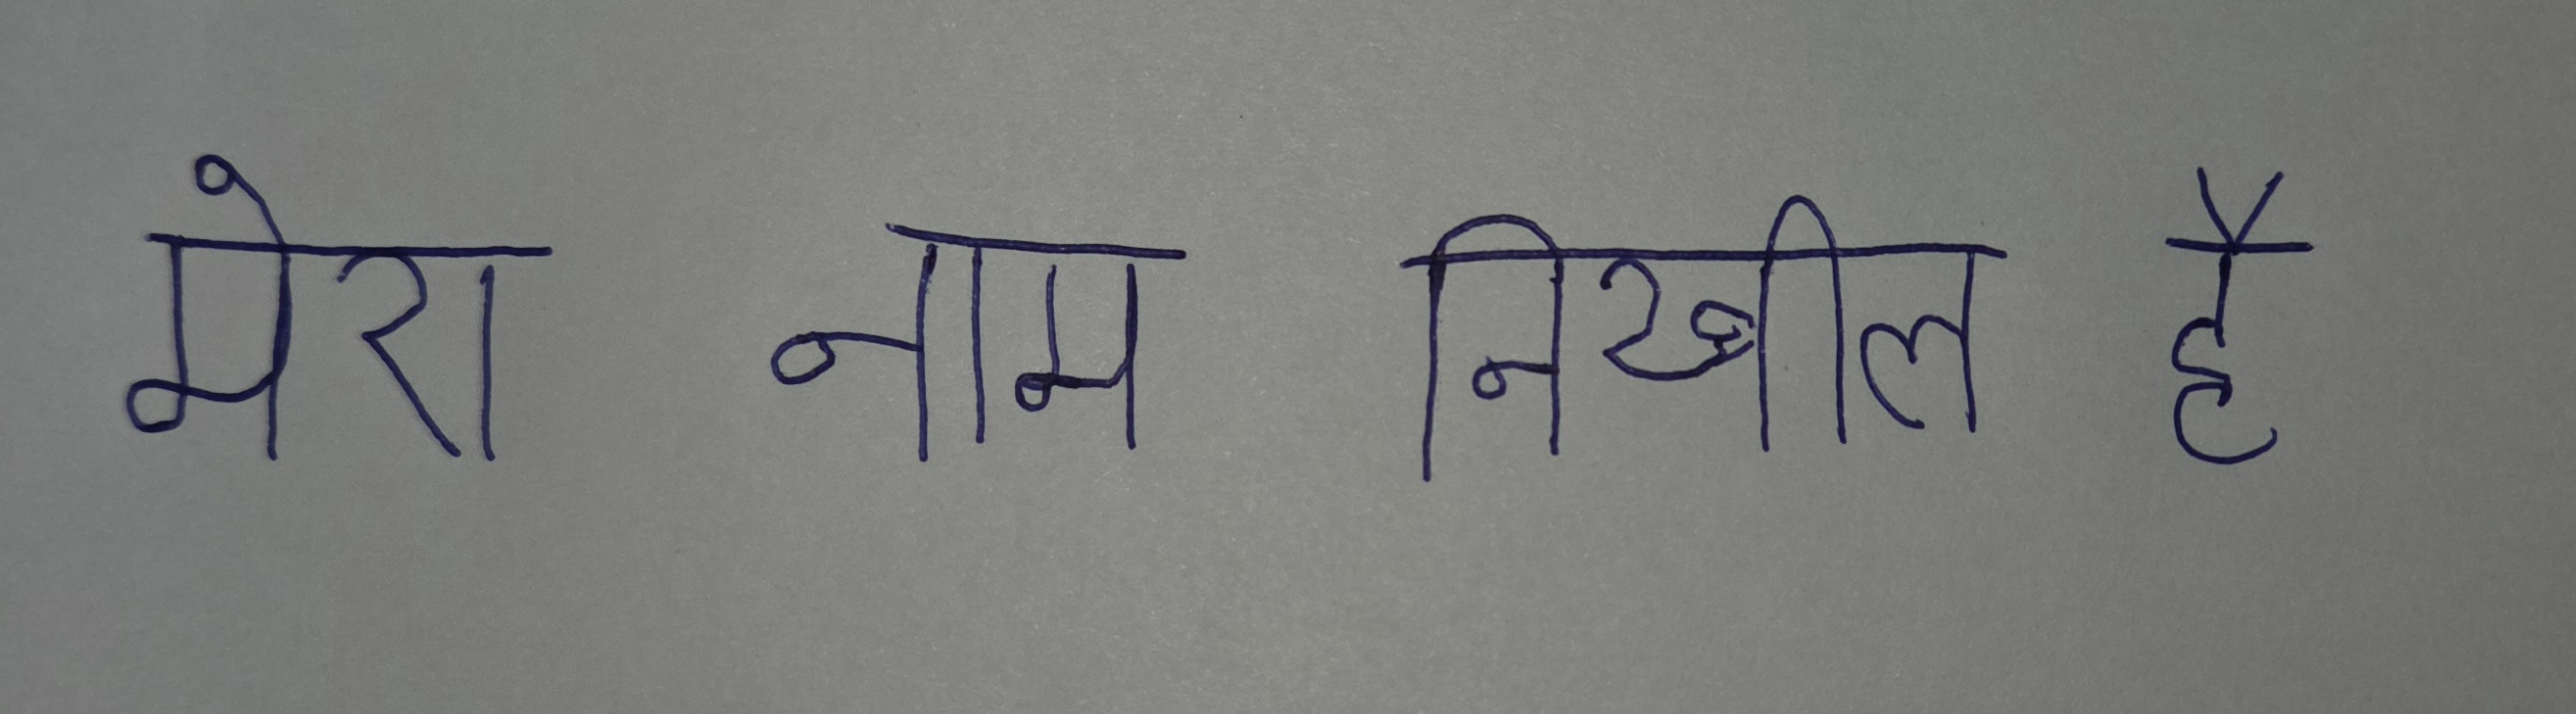 मेरा नाम निखील है